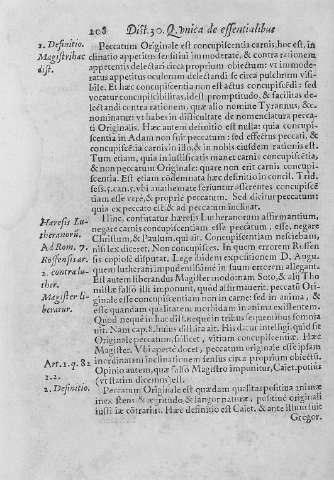 208 Dist. 30. Q. vnica de essentialibus
1. Definitio.
Magistri hac
dist.
Peccatum Originale est concupiscentia carnis, hoc est, in
clinatio appetitus sensitiui immoderatè, & contra rationem
appetentis delectari circa proprium obiectum: vt immode-
ratus appetitus oculorum delectandi se circa pulchrum visi-
bile. Et hæc concupiscentia non est actus concupiscẽdi: sed
vocatur concupiscibilitas, id est, promptitudo, & facilitas de-
lectandi contra rationem. quæ alio nomine Tyrannus, &c.
nominatur: vt habes in difficultate de nomenclatura pecca-
ti Originalis. Hæc autem definitio est nulla: quia concupi-
scentia in Adam non fuit peccatum: sed effectus peccati, &
concupiscentia carnis in illo, & in nobis eiusdem rationis est.
Tum etiam, quia in iustificatis manet carnis concupiscẽtia,
& non peccatum Originale: quare non erit carnis concupi-
scentia. Est etiam codemnata hæc definitio in concil. Trid.
sess. 5. can. 5. vbi anathemate feriuntur asserentes concupiscẽ
tiam esse verè, & propriè peccatum. Sed dicitur peccatum:
quia ex peccato est, & ad peccatum inclinat.
Hæresis Lu-
theranorũ.
Ad Rom. 7.
Roffensis ar.
2. contra lu-
ther.
Magister li-
beratur.
Hinc, confutatur hæresis Lutheranorum affirmantium,
negare carnis concupiscentiam esse peccatum, esse, negare
Christum, & Paulum, qui ait. Concupiscentiam nesciebam,
nisi lex diceret. Non concupisces. In quem errorem Roffen
sis copiosè disputat. Lege ibidem expositionem D. Augu.
quem lutherani impudentissimè in suum errorem allegant.
Est autem liberandus Magister modo nam. Soto, & alij Tho
mistæ falsò illi imponunt, quod affirmauerit. peccatũ Ori-
ginale esse concupiscentiam non in carne: sed in anima, &
esse quandam qualitatem morbidam in anima existentem.
Quod neque in hac dist. neque in tribus sequentibus somnia
uit. Nam cap. 8. huius dist. ita ait. His datur intelligi, quid sit
Originale peccatum, scilicet, vitium concupiscentiæ. Hæc
Magister. Vbi apertè docet, peccatum originale esse ipsam
inordinatam inclinationem sensus circa proprium obiectũ.
Art. 1. q. 82
1. 2.
Opinio autem, quæ falsò Magistro imponitur, Caiet. potius
(vt statim dicemus) est.
2. Definitio.
Peccatum Originale est quædam qualitas positiua animæ
inexistens, & ægritudo, & languor naturæ, positiuè originali
iustitiæ cõtrarius. Hæc definitio est Caiet. & ante illum fuit
Gregor.